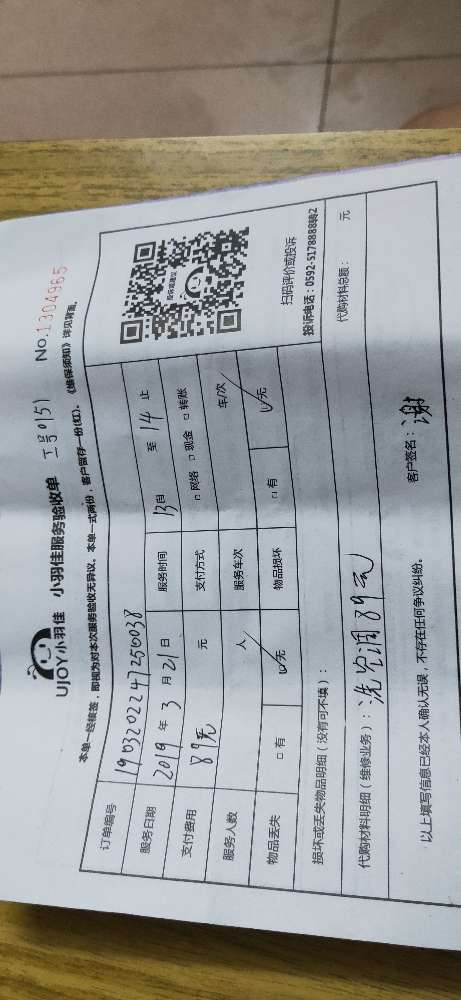 UJOY小羽佳 小羽佳服务验收单 工号0151 No.1304965
本单一经核签,即视为对本次服务验收无异议。本单一式两份,客户留存一份(红)。《维保须知》详见背面。
订单编号 1903202247250038
服务日期 2019年3月21日 服务时间 13自 至 14止
支付费用 89元 元 支付方式 □网络 □现金 □转账
服务人数 人 服务车次 车/次
物品丢失 □有 ☑无 物品损坏 □有 ☑无
投诉或建议
扫码评价或投诉
投诉电话:0592-5178888转2
损坏或丢失物品明细(没有可不填):
代购材料明细(维修业务):洗空调89元 代购材料总额: 元
以上填写信息已经本人确认无误,不存在任何争议纠纷。 客户签名:谢